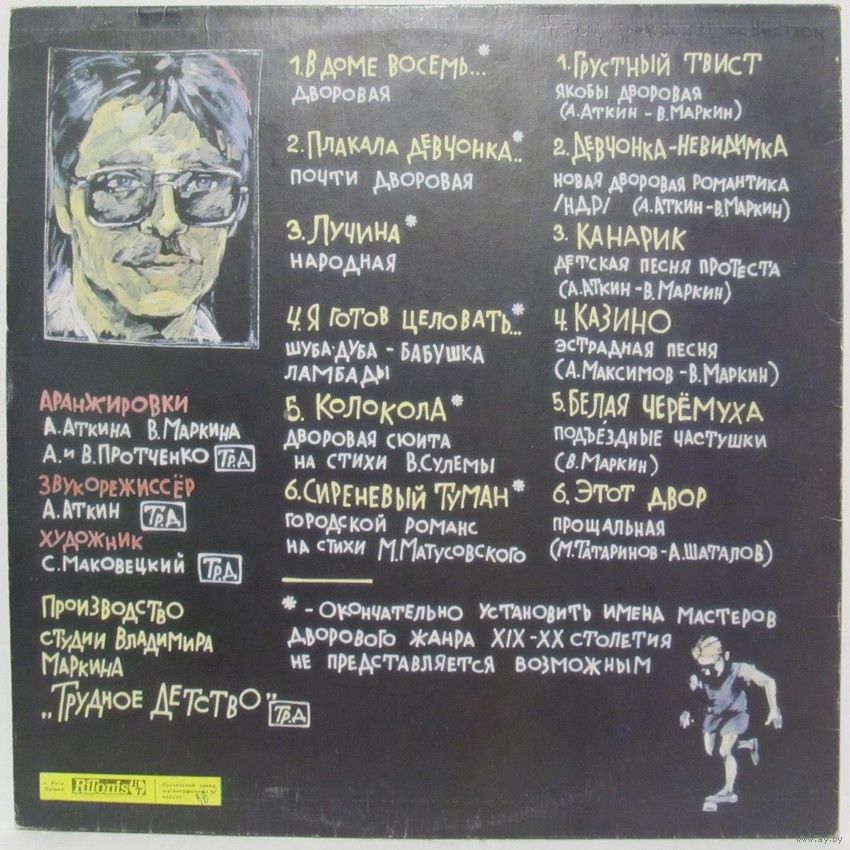 From personal collection
1. В ДОМЕ ВОСЕМЬ...*
ДВОРОВАЯ
2. ПЛАКАЛА ДЕВЧОНКА..*
ПОЧТИ ДВОРОВАЯ
3. ЛУЧИНА*
НАРОДНАЯ
4. Я ГОТОВ ЦЕЛОВАТЬ...*
ШУБА-ДУБА - БАБУШКА
ЛАМБАДЫ
5. КОЛОКОЛА*
ДВОРОВАЯ СЮИТА
НА СТИХИ В.СУЛЕМЫ
6. СИРЕНЕВЫЙ ТУМАН*
ГОРОДСКОЙ РОМАНС
НА СТИХИ М.МАТУСОВСКОГО
1. ГРУСТНЫЙ ТВИСТ
ЯКОБЫ ДВОРОВАЯ
(А.АТКИН - В.МАРКИН)
2. ДЕВЧОНКА-НЕВИДИМКА
НОВАЯ ДВОРОВАЯ РОМАНТИКА
/НДР/ (А.АТКИН - В.МАРКИН)
3. КАНАРИК
ДЕТСКАЯ ПЕСНЯ ПРОТЕСТА
(А.АТКИН - В.МАРКИН)
4. КАЗИНО
ЭСТРАДНАЯ ПЕСНЯ
(А.МАКСИМОВ - В.МАРКИН)
5. БЕЛАЯ ЧЕРЁМУХА
ПОДЪЕЗДНЫЕ ЧАСТУШКИ
(В.МАРКИН)
6. ЭТОТ ДВОР
ПРОЩАЛЬНАЯ
(М.ТАТАРИНОВ - А.ШАТАЛОВ)
* - ОКОНЧАТЕЛЬНО УСТАНОВИТЬ ИМЕНА МАСТЕРОВ
ДВОРОВОГО ЖАНРА XIX-XX СТОЛЕТИЯ
НЕ ПРЕДСТАВЛЯЕТСЯ ВОЗМОЖНЫМ
АРАНЖИРОВКИ
А.АТКИНА В.МАРКИНА
А. И В.ПРОТЧЕНКО Тр.Д
ЗВУКОРЕЖИССЁР
А.АТКИН Тр.Д
ХУДОЖНИК
С.МАКОВЕЦКИЙ Тр.Д
ПРОИЗВОДСТВО
СТУДИИ ВЛАДИМИРА
МАРКИНА
„ТРУДНОЕ ДЕТСТВО" Тр.Д
г. Рига
Латвия
RiTonis
магнитофонных
кассет
www.ay.by